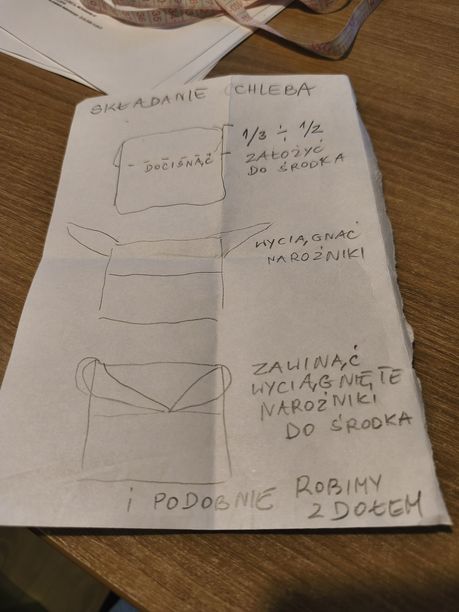 SKŁADANIE CHLEBA
1/3 ÷ 1/2
ZAŁOŻYĆ
DO ŚRODKA
DOCISNĄĆ
WYCIĄGNAĆ
NAROŻNIKI
ZAWINĄĆ
WYCIĄGNIĘTE
NAROŻNIKI
DO ŚRODKA
i PODOBNIE ROBIMY
Z DOŁEM